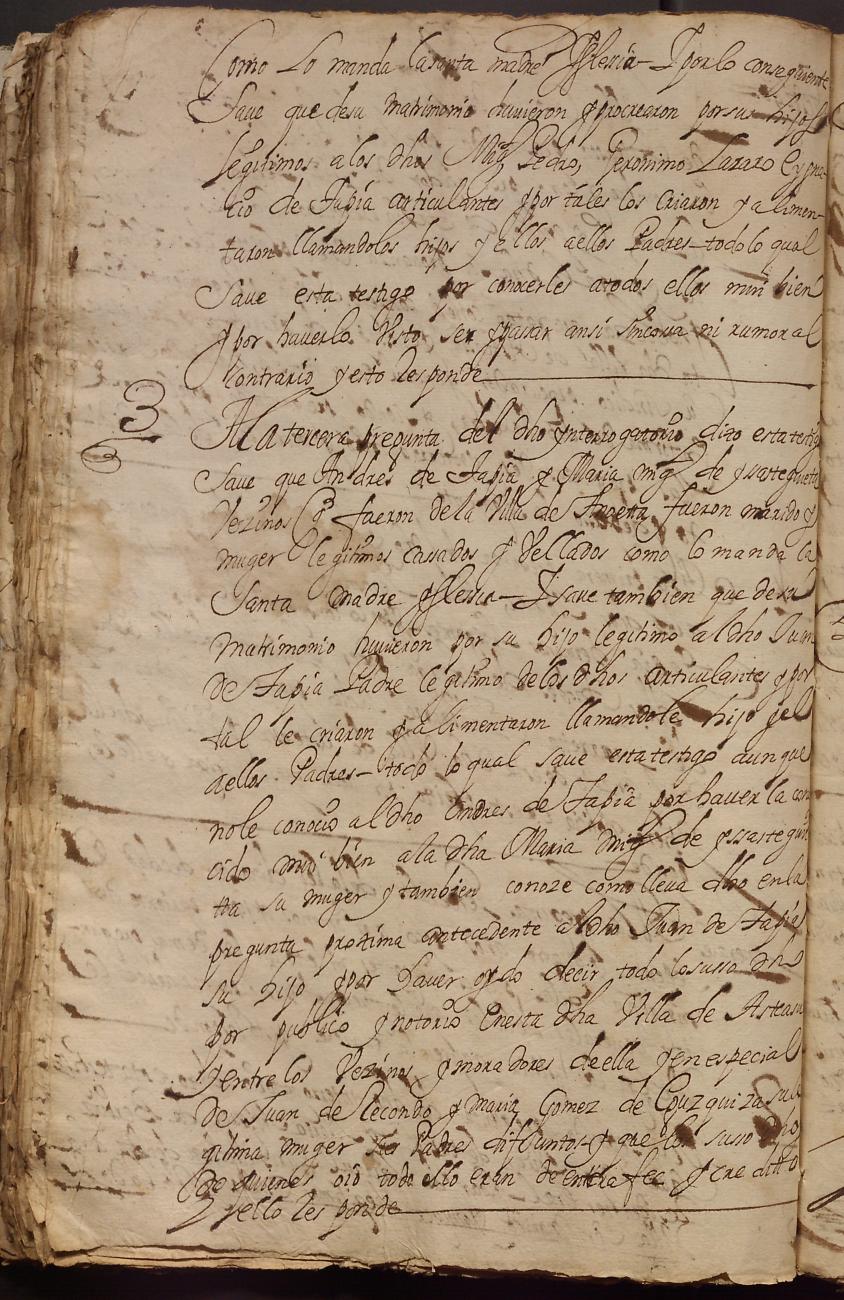 Como Lo manda la santa madre Yglesia – Y por lo conseguiente
Save que de su matrimonio huvieron y procrearon por sus hijos
legitimos a los dhos Migl Pedro, Geronimo Lazaro Cypria-
cio de Tapia articulantes y por tales los criaron y alimen-
taron llamandolos hijos y ellos a ellos Padres – todo lo qual
Save esta testigo por conocerles a todos ellos mui bien
y por haverlo Visto ser y pasar ansi sin cossa ni rumor al
contrario y esto responde
3
A la tercera pregunta del dho ynterrogatorio dixo esta testigo
Save que Andres de Tapia y Maria migl de yssasteguieta
Vezinos q fueron de la Villa de fueron marido y
muger legitimos cassados y Vellados como lo manda la
Santa madre yglesia – Y save tambien que de su
matrimonio huvieron por su hijo legitimo al dho Juan
de Tapia Padre legitimo de los dhos articulantes y por
tal le criaron y alimentaron llamandole hijo y el
a ellos Padres – todo lo qual save esta testigo aunque
no le conocio al dho Andres de Tapia por haver la cono
cido mui bien a la dha Maria migl de yssastegui
ta su muger y tambien conoze como lleva dho en la
pregunta proxima antecedente al dho Juan de Tapia
su hijo y por haver oydo decir todo lo susso dho
por publico y notorio en esta dha Villa de Asteasu
y entre los Vezinos y moradores de ella y en especial
de Juan de Lecondo y Maria Gomez de Eyzquiza su le
gitima muger sus Padres difuntos y que los susso dho
de quienes oio todo ello eran de entera fee y credito
y ello responde